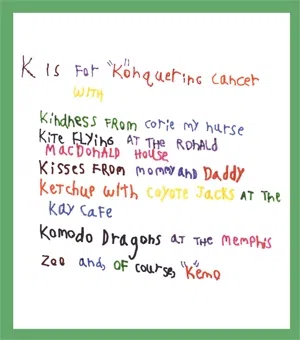 K is FOR "K"onquering cancer
WITH
Kindness FROM corie my nurse
Kite FLYing AT THE RONALD
MACDONALD HOUSE
Kisses FROM mommy and Daddy
Ketchup with COYOTE JACKS AT THE
KAY CaFe
Komodo Dragons AT THE MEMPHIS
Zoo and, OF course, "K"emo